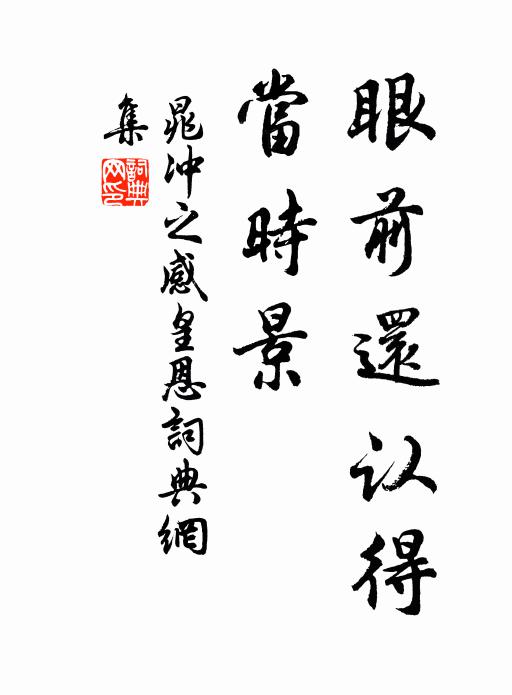 眼前還认得
當時景
晁冲之感皇恩詞典網
集
詞典网印